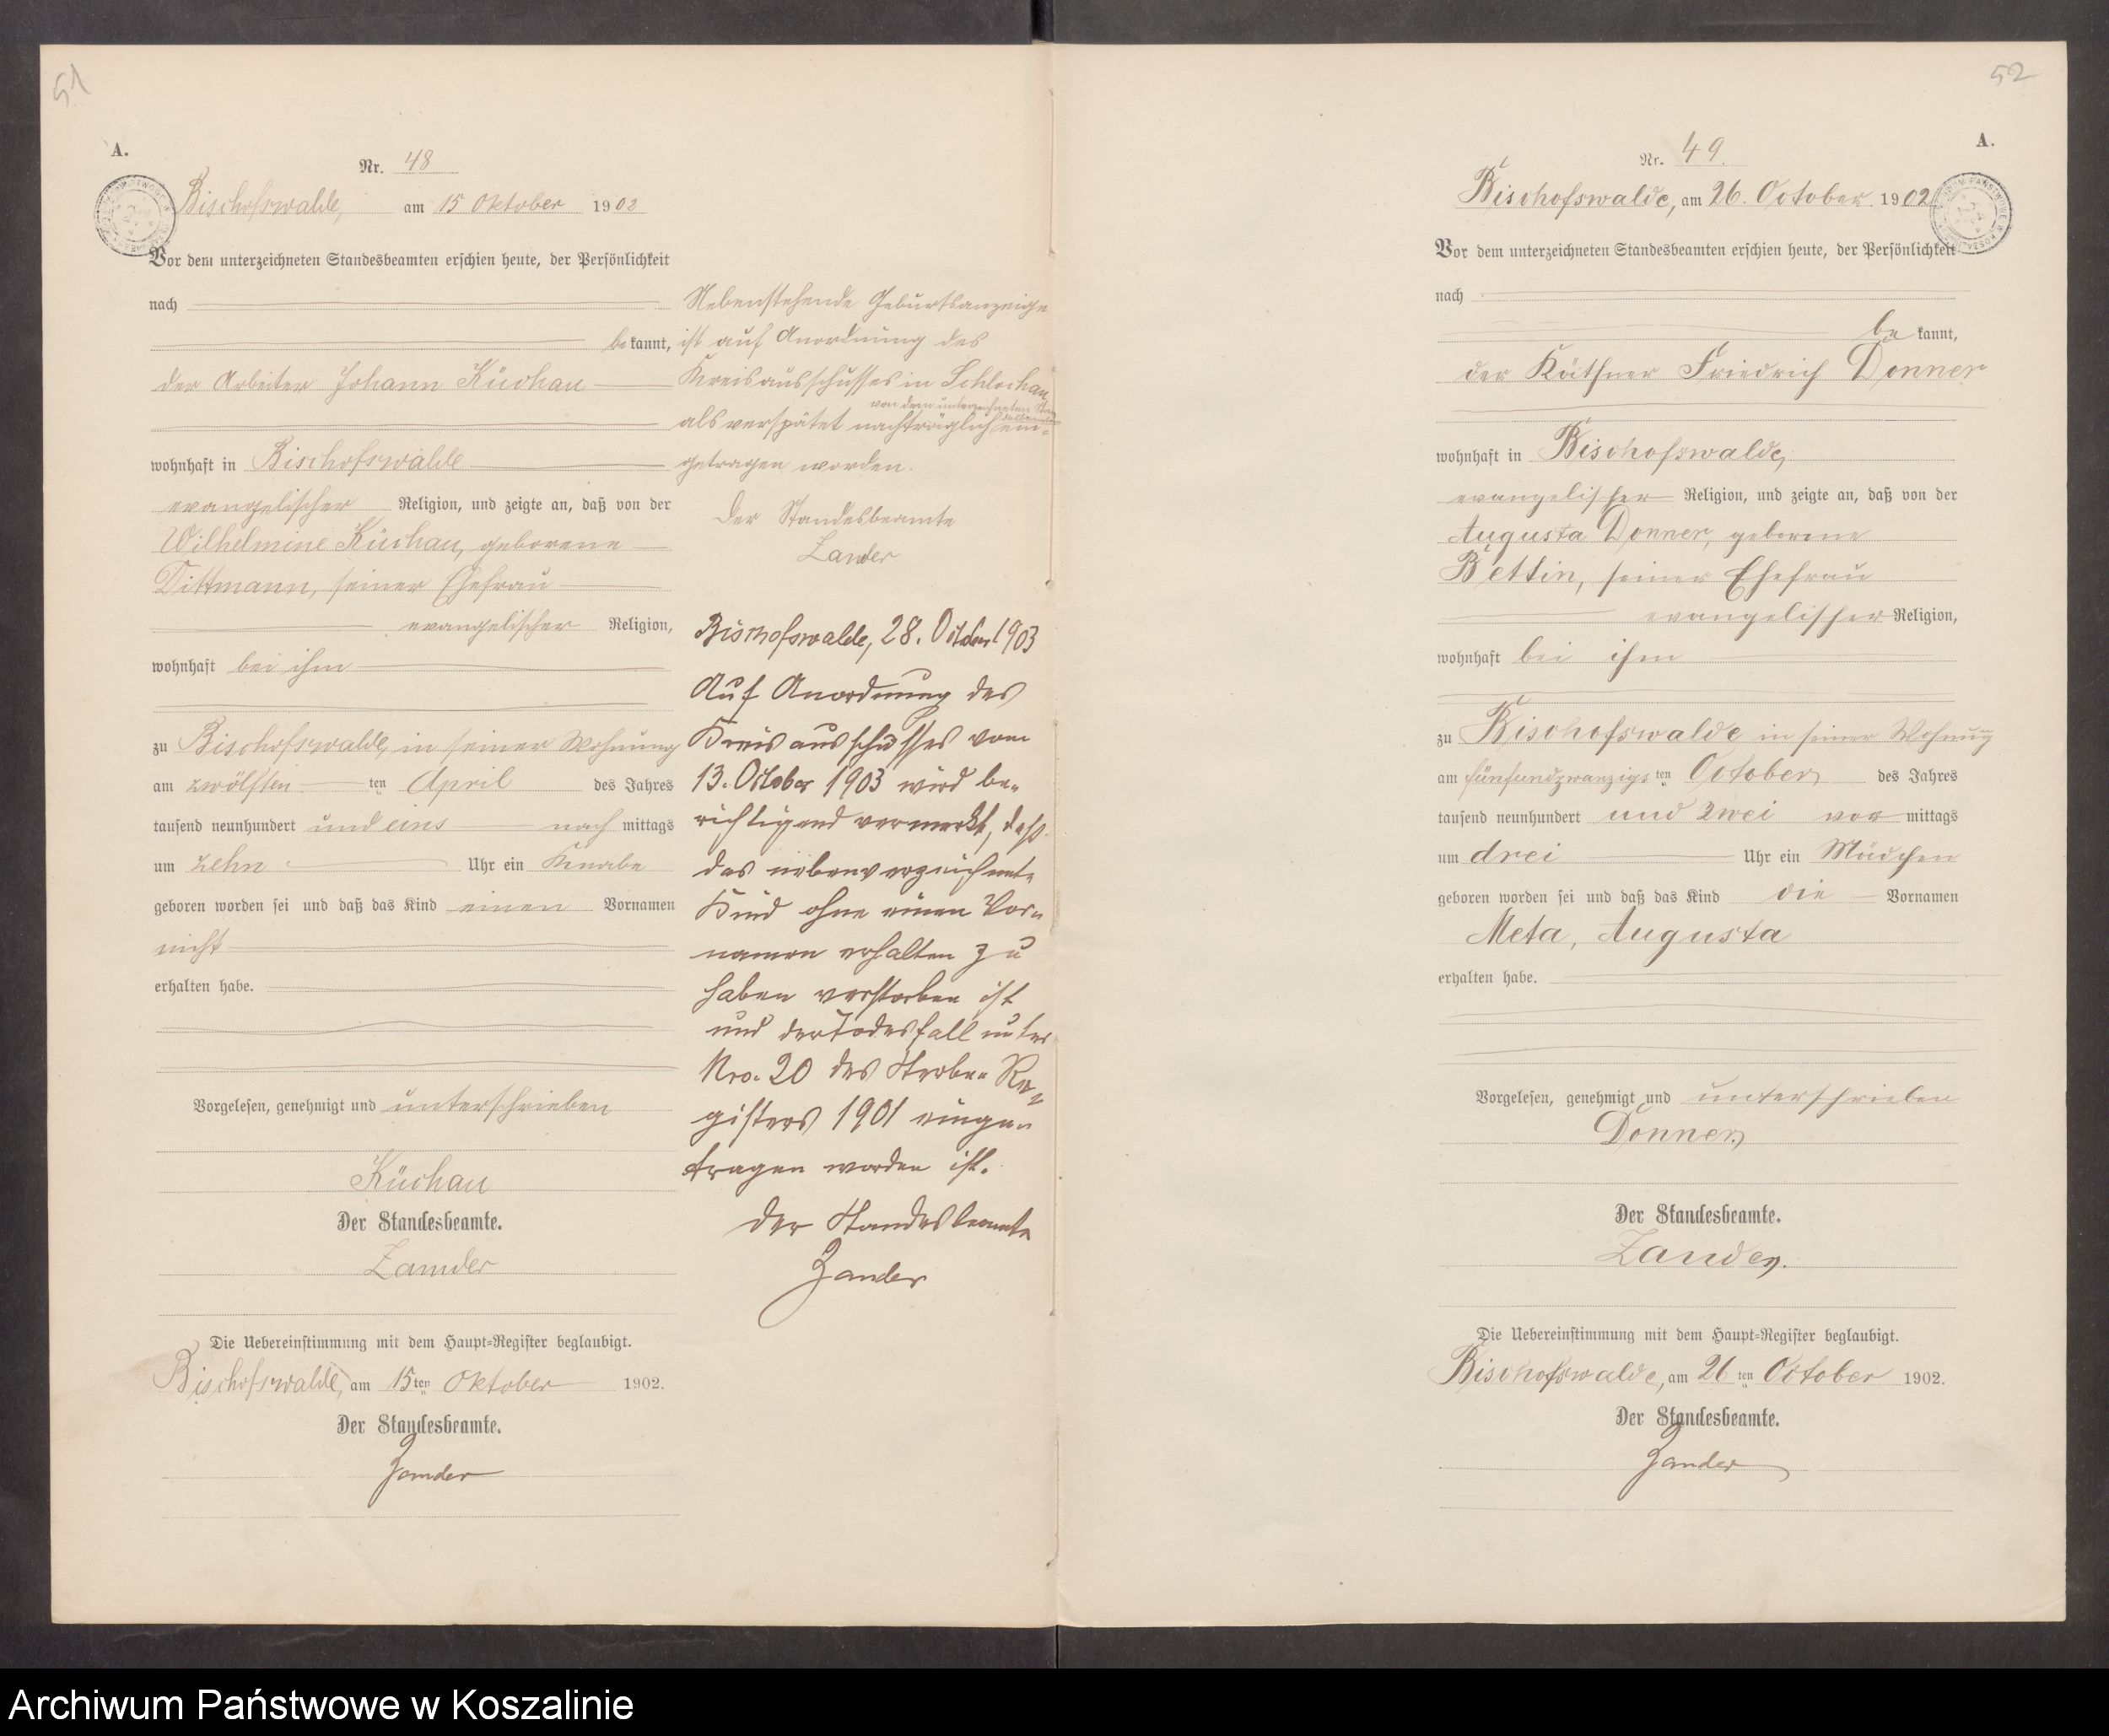 51
A.
Nr. 48
Bischofswalde, am 15 Oktober 1902
Vor dem unterzeichneten Standesbeamten erschien heute, der Persönlichkeit
nach
bekannt,
der Arbeiter Johann Küchau
wohnhaft in Bischofswalde
evangelischer Religion, und zeigte an, daß von der
Wilhelmine Küchau, geborene
Dittmann, seiner Ehefrau
evangelischer Religion,
wohnhaft bei ihm
zu Bischofswalde, in seiner Wohnung
am zwölften ten April des Jahres
tausend neunhundert und eins nach mittags
um zehn Uhr ein Knabe
geboren worden sei und daß das Kind einen Vornamen
nicht
erhalten habe.
Vorgelesen, genehmigt und unterschrieben
Küchau
Der Standesbeamte.
Zander
Die Uebereinstimmung mit dem Haupt-Register beglaubigt.
Bischofswalde, am 15ten Oktober 1902.
Der Standesbeamte.
Zander
Nebenstehende Geburtsanzeige
ist auf Anordnung des
Kreisausschusses in Schlochau
von dem unterzeichneten
als verspätet nachträglich ein-
getragen worden.
Der Standesbeamte
Zander
Bischofswalde, 28. October 1903
Auf Anordnung des
Kreisausschusses vom
13. October 1903 wird be-
richtigend vermerkt, daß
das nebenverzeichnete
Kind ohne einen Vor-
namen erhalten zu
haben verstorben ist
und der Todesfall unter
Nro. 20 des Sterbe- Re-
gisters 1901 einge-
tragen worden ist.
Der Standesbeamte
Zander
52
A.
Nr. 49.
Bischofswalde, am 26. October 1902
Vor dem unterzeichneten Standesbeamten erschien heute, der Persönlichkeit
nach
be kannt,
der Käthner Friedrich Donner
wohnhaft in Bischofswalde,
evangelischer Religion, und zeigte an, daß von der
Augusta Donner, geborene
Bettin, seiner Ehefrau
evangelischer Religion,
wohnhaft bei ihm
zu Bischofswalde in seiner Wohnung
am fünfundzwanzigs ten October des Jahres
tausend neunhundert und zwei vor mittags
um drei Uhr ein Mädchen
geboren worden sei und daß das Kind die Vornamen
Meta, Augusta
erhalten habe.
Vorgelesen, genehmigt und unterschrieben
Donner
Der Standesbeamte.
Zander.
Die Uebereinstimmung mit dem Haupt-Register beglaubigt.
Bischofswalde, am 26ten October 1902.
Der Standesbeamte.
Zander
Archiwum Państwowe w Koszalinie